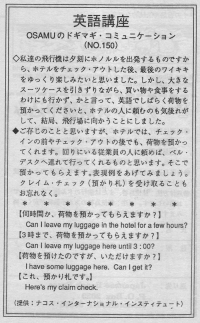 英語講座
OSAMUのドギマギ・コミュニケーション
(NO.150)
◇私達の飛行機は夕刻にホノルルを出発するものですか
ら、ホテルをチェック・アウトした後、最後のワイキキ
をゆっくり楽しみたいと思いました。しかし、大きな
スーツケースを引きずりながら、買い物や食事をする
わけにも行かず。かと言って、英語でしばらく荷物を
預かってくださいと、ホテルの人に頼むのも気後れが
して、結局、飛行場に向かうことにしました。
◆ご存じのことと思いますが、ホテルでは、チェック・
インの前やチェック・アウトの後でも、荷物を預かっ
てくれます。辺りにいる従業員の人に頼めば、ベル・
デスクへ連れて行ってくれるものと思います。そこで
預かってもらえます。表現例をあげてみましょう。
クレイム・チェック(預かり札)を受け取ることも
お忘れなく。
* * * * * * * *
【何時間か、荷物を預かってもらえますか?】
Can I leave my luggage in the hotel for a few hours?
【3時まで、荷物を預かってもらえますか?】
Can I leave my luggage here until 3:00?
【荷物を預けたのですが、いただけますか?】
I have some luggage here. Can I get it?
【これ、預かり札です。】
Here's my claim check.
(提供:ナコス・インターナショナル・インスティテュート)